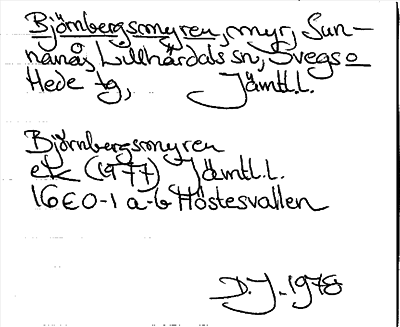 Björnbergsmyren, myr, Sun-
nanå, Lillhärdals sn, Svegs o
Hede tg, Jämtl.l.
Björnbergsmyren
ek (1977) Jämtl.l.
16E0-1 a-b Höstesvallen
D.J. 1978